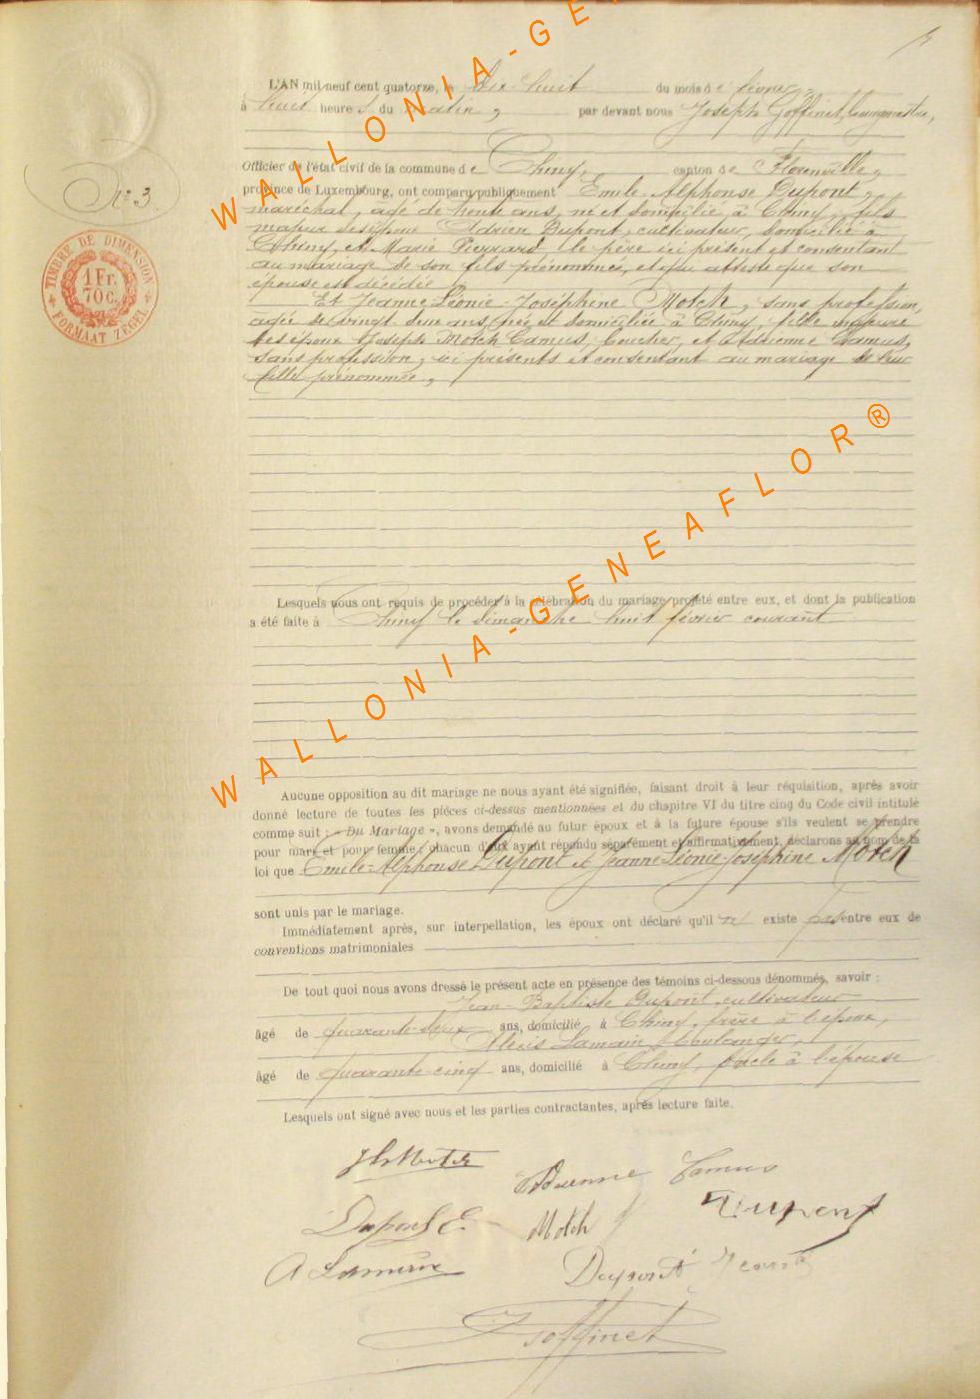 L'AN mil neuf cent quatorze, le dix huit du mois de février,
à huit heures du matin, par devant nous Joseph Goffinet, bourgmestre,
Officier de l'état civil de la commune de Chiny, canton de Florenville,
province de Luxembourg, ont comparu publiquement Emile Alphonse Dupont,
N° 3
maréchal, agé de trente ans, né et domicilié à Chiny, fils
majeur des époux Adrien Dupont, cultivateur, domicilié à
Chiny, et Marie Pierrard, le père ici présent et consentant
au mariage de son fils prénommé, et qui atteste que son
épouse est décédée
Et Jeanne Léonie Joséphine Motch, sans profession,
agée de vingt deux ans, née et domiciliée à Chiny, fille majeure
des époux Joseph Motch Camus, boucher, et Adrienne Camus,
sans profession, ici présents et consentant au mariage de leur
fille prénommée,
TIMBRE DE DIMENSION
1 Fr.
70 c.
FORMAAT ZEGEL
Lesquels nous ont requis de procéder à la célébration du mariage projeté entre eux, et dont la publication
a été faite à Chiny le dimanche huit février courant
Aucune opposition au dit mariage ne nous ayant été signifiée, faisant droit à leur réquisition, après avoir
donné lecture de toutes les pièces ci-dessus mentionnées et du chapitre VI du titre cinq du Code civil intitulé
comme suit : « Du Mariage », avons demandé au futur époux et à la future épouse s'ils veulent se prendre
pour mari et pour femme ; chacun d'eux ayant répondu séparément et affirmativement, déclarons au nom de la
loi que Emile-Alphonse Dupont et Jeanne-Léonie-Joséphine Motch
sont unis par le mariage.
Immédiatement après, sur interpellation, les époux ont déclaré qu'il n' existe pas entre eux de
conventions matrimoniales
De tout quoi nous avons dressé le présent acte en présence des témoins ci-dessous dénommés, savoir :
Jean-Baptiste Dupont, cultivateur
âgé de quarante-deux ans, domicilié à Chiny, frère à l'époux,
Alexis Lamain, boulanger,
âgé de quarante-cinq ans, domicilié à Chiny, oncle à l'épouse
Lesquels ont signé avec nous et les parties contractantes, après lecture faite.
Adrienne Camus
Dupont E. Motch Dupont
A Lamain Dupont
Goffinet
WALLONIA-GE
WALLONIA-GENEAFLOR®